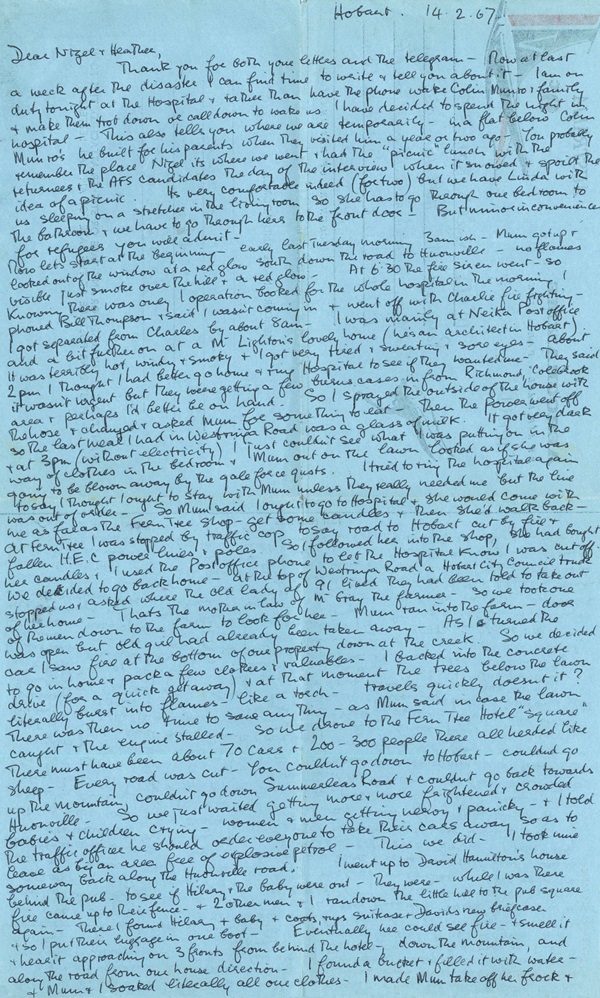 Hobart. 14.2.67.
Dear Nigel & Heather,
Thank you for both your letters and the telegram - Now at last
a week after the disaster I can find time to write & tell you about it - I am on
duty tonight at the Hospital & rather than have the phone wake Colin Munro & family
& make them trot down or call down to wake us I have decided to spend the night in
hospital - This also tells you where we are temporarily - in a flat below Colin
Munro's he built for his parents when they visited him a year or two ago - You probably
remember the place Nigel its where we went & had the "picnic" lunch with the
returnees & the AFS candidates the day of the interview when it snowed & spoilt the
idea of a picnic. Its very comfortable indeed (for two) but we have Linda with
us sleeping on a stretcher in the living room so she has to go through one bedroom to
the bathroom & we have to go through hers to the front door! But minor inconvenience
for refugees you will admit -
Now lets start at the beginning - early last Tuesday morning 3am ish - Mum got up &
looked out of the window at a red glow south down the road to Huonville - no flames
visible just smoke over the hill & a red glow - At 6.30 the fire siren went - so
Knowing there was only 1 operation booked for the whole hospital in the morning I
phoned Bill Thompson & said I wasn't coming in & went off with Charlie fire fighting -
I got separated from Charles by about 8am - I was mainly at Neika Post office
and a bit further on at a Mr Lighton's lovely home (he's an architect in Hobart)
It was terribly hot, windy & smoky & I got very tired & sweating & sore eyes - about
2pm I thought I had better go home & ring Hospital to see if they wanted me - They said
it wasn't urgent but they were getting a few burns cases in from Richmond, Colebrook
area & perhaps I'd better be on hand. So I sprayed the outside of the house with
the hose & changed & asked Mum for something to eat - Then the power went off
so the last meal I had in Westringa Road was a glass of milk. It got very dark
& at 3pm (without electricity) I just couldn't see what I was putting on in the
way of clothes in the bedroom & Mum out on the lawn looked as if she was
going to be blown away by the gale force gusts. I tried to ring the hospital again
to say I thought I ought to stay with Mum unless they really needed me but the line
was out of order - So Mum said I ought to go to Hospital & she would come with
me as far as the Fern Tree shop - get some candles & then she'd walk back -
At Fern Tree I was stopped by traffic cop to say road to Hobart cut by fire &
fallen H.E.C power lines & poles. So I followed her into the shop, she had bought
her candles & I used the Post office phone to let the Hospital know I was cut off
We decided to go back home - at the top of Westringa Road a Hobart City Council truck
stopped us & asked where the old lady of 91 lived they had been told to take out
of her home - Thats the mother in law of Mr Gray the farmer - so we took one
of the men down to the farm to look for her - Mum ran into the farm - door
was open but old girl had already been taken away - As I turned the
car I saw fire at the bottom of our property down at the creek. So we decided
to go in home & pack a few clothes & valuables - I backed into the concrete
drive (for a quick getaway) & at that moment the trees below the lawn
literally burst into flames - like a torch - travels quickly doesn't it?
There was then no time to save anything - as Mum said in case the lawn
caught & the engine stalled - So we drove to the Fern Tree Hotel "square"
There must have been about 70 cars & 200 - 300 people there all herded like
sheep - Every road was cut - You couldn't go down to Hobart - couldnt go
up the mountain, couldn't go down Summerleas Road & couldnt go back towards
Huonville - So we just waited getting more & more frightened & crowded
babies & children crying - women & men getting nervy & panicky - & I told
the traffic officer he should order everyone to take their cars away so as to
leave as big an area free of explosive petrol - This we did - I took mine
someway back along the Huonville road. I went up to David Hamilton's house
behind the pub - to see if Hilary & the baby were out - They were - while I was there
fire came up to their fence - & 2 other men & I ran down the little hill to the pub square
again - There I found Hilary & baby & coats, rugs suitcase & Davids new briefcase
& so I put their luggage in one boot - Eventually we could see fire - & smell it
& hear it approaching on 3 fronts from behind the hotel, down the mountain, and
along the road from one house direction - I found a bucket & filled it with water -
& Mum & I soaked literally all our clothes - I made Mum take off her frock &